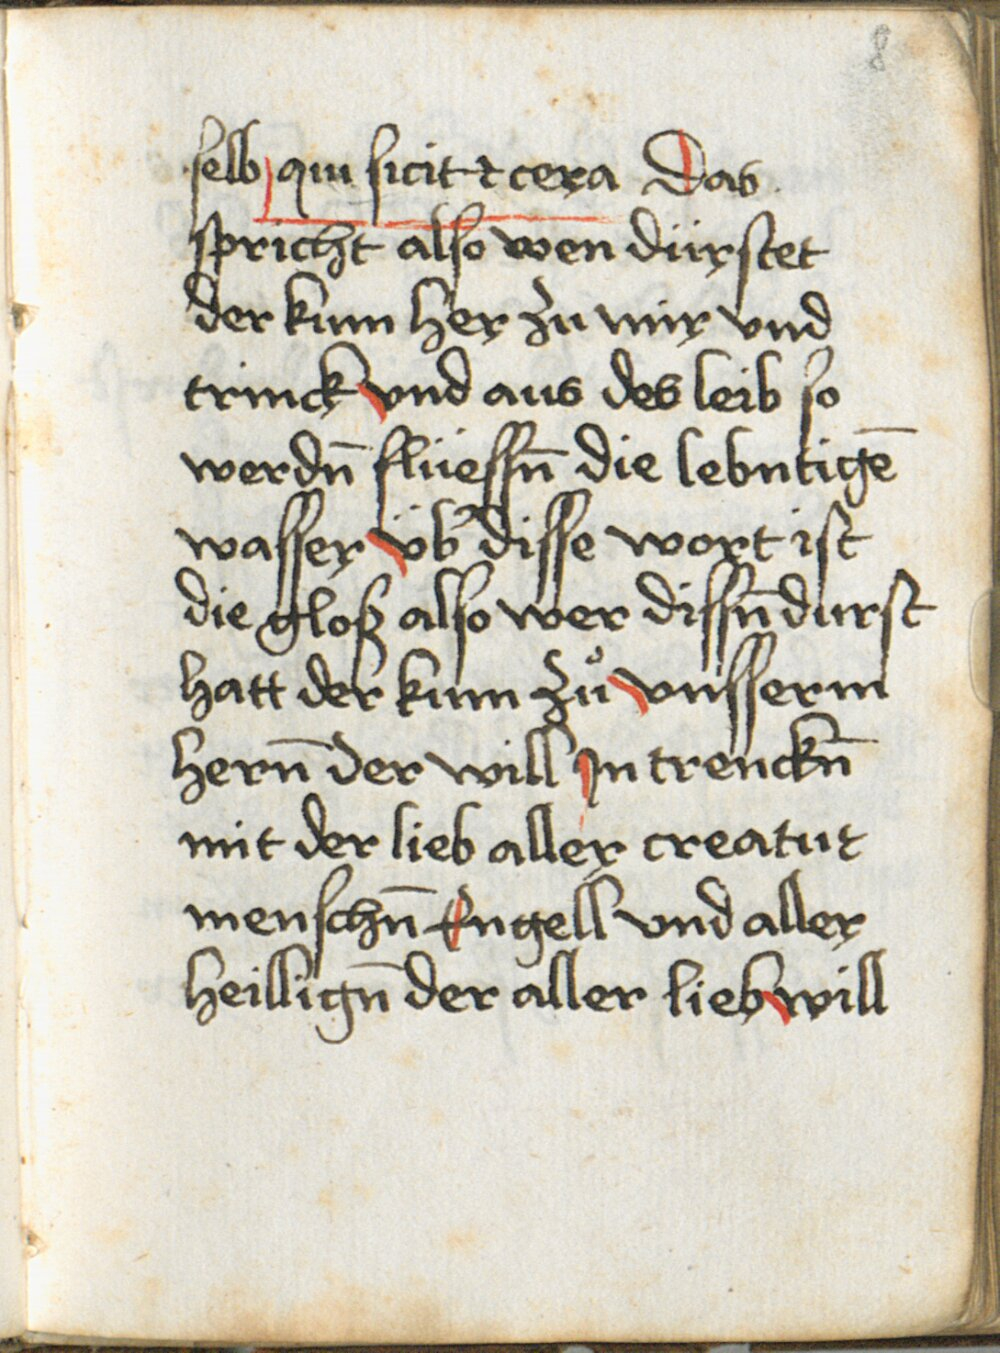 8
selb qui sicit et cera Das
spricht also wen dürstet
der kum her zu mir vnd
trinck vnd aus des leib so
werdn̄ flüessn̄ die lebntigē
wasser üb disse wort ist
die gloß also wer dissn̄ durst
hatt der kum zů vnsserm
hern̄ der will Jn trenckn̄
mit der lieb aller creatur
menschn̄ Engell vnd aller
heillign̄ der aller lieb will